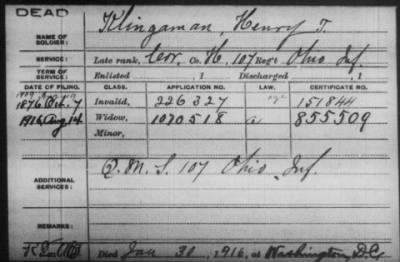 DEAD
NAME OF SOLDIER: Klingaman, Henry T.
SERVICE: Late rank, Cor, Co. H, 107 Reg't Ohio Inf.
TERM OF SERVICE: Enlisted , 1 Discharged , 1
DATE OF FILING. CLASS. APPLICATION NO. LAW. CERTIFICATE NO.
1876 Oct. 7 Invalid, 226327 151844
1916 Aug 14 Widow, 1070518 855509
Minor,
ADDITIONAL SERVICES: Q.M.S. 107 Ohio Inf.
REMARKS:
Died Jan 30, 1916, at Washington, D.C.